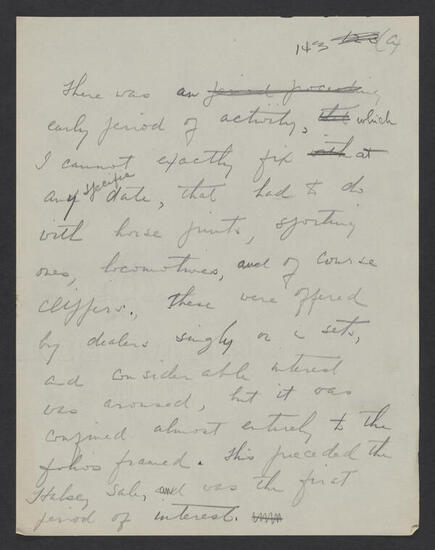 143 (a)
There was an
early period of activity, which
I cannot exactly fix at
any specific date, that had to do
with horse prints, sporting
ones, locomotives, and of course
Clippers., these were offered
by dealers singly or in sets,
and considerable interest
was aroused, but it was
confined almost entirely to the
folios framed. This preceded the
Halsey Sale, and was the first
period of interest.